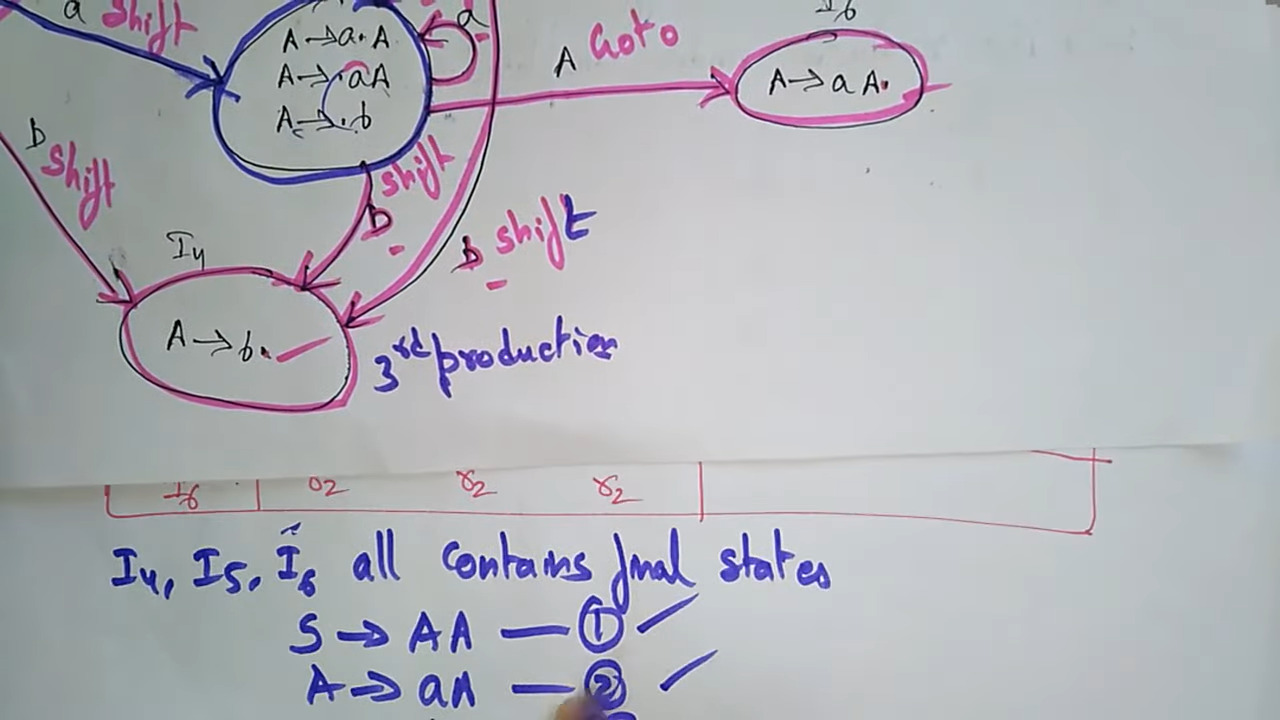 a shift
A→a.A
a
I6
A→.aA
A Goto
A→aA.
A→.b
b shift
shift
b
b shift
I4
A→b.
3rd production
I6 r2 r2 r2
I4, I5, I6 all contains final states
S → AA — ①
A → aA — ②